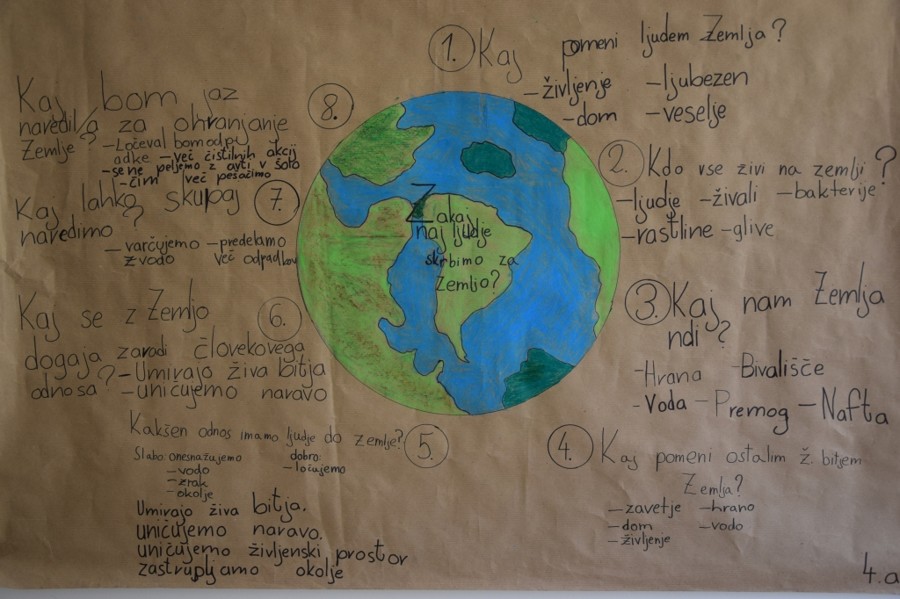 Zakaj
naj ljudje
skrbimo za
Zemljo?
1. Kaj pomeni ljudem Zemlja?
-življenje -ljubezen
-dom -veselje
2. Kdo vse živi na zemlji?
-ljudje -živali -bakterije
-rastline -glive
3. Kaj nam Zemlja
ndi?
-Hrana -Bivališče
-Voda -Premog -Nafta
4. Kaj pomeni ostalim ž. bitjem
Zemlja?
-zavetje -hrano
-dom -vodo
-življenje
5. Kakšen odnos imamo ljudje do zemlje?
Slabo: onesnažujemo dobro:
-vodo -ločujemo
-zrak
-okolje
Umirajo živa bitja.
uničujemo naravo.
uničujemo življenski prostor
zastrupljamo okolje
6. Kaj se z Zemljo
dogaja zaradi človekovega
odnosa? -Umirajo živa bitja
-uničujemo naravo
7. Kaj lahko skupaj
naredimo?
-varčujemo -predelamo
z vodo več odpadkov
8. Kaj bom jaz
naredil/a za ohranjanje
Zemlje? -Ločeval bom odpa
adke -več čistilnih akcij
-se ne peljemo z avti v šolo
-čim več pešačimo
4.a